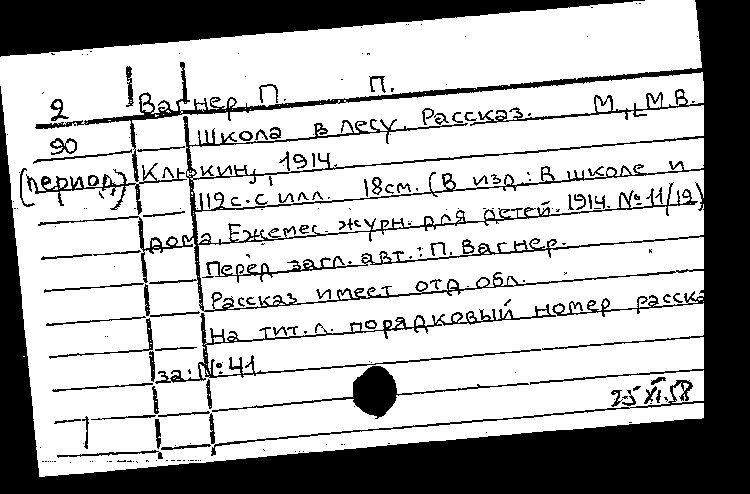 2 Вагнер, П. П.
90 Школа в лесу. Рассказ. М., М.В.
(период.) Клюкин, 1914.
112с. с илл. 18см. (В изд.: В школе и
дома. Ежемес. журн. для детей. 1914. №11/12)
Перед загл. авт.: П. Вагнер.
Рассказ имеет отд. обл.
На тит. л. порядковый номер расска
за: №41.
25 XI.58